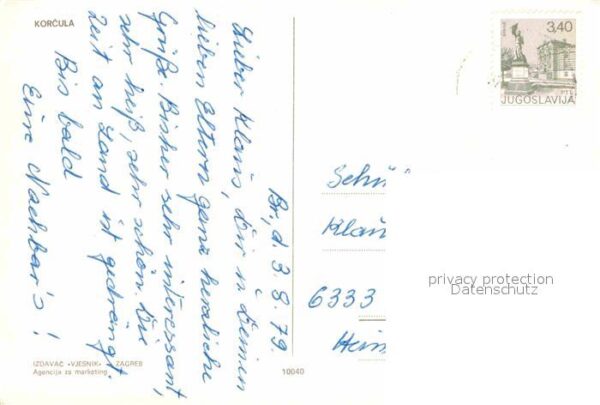 KORČULA
Br, d. 3.8.79
Lieber Klaus, Dir u. Deinen
lieben Eltern ganz herzliche
Grüße. Bisher sehr interessant,
sehr heiß, sehr schön. Die
Zeit an Land ist gedrängt.
Bis bald
Eure Nachbar's!
IZDAVAČ »VJESNIK« - ZAGREB
Agencija za marketing
10040
3,40
JUGOSLAVIJA
Schü
Klau
6333
Heim
privacy protection
Datenschutz